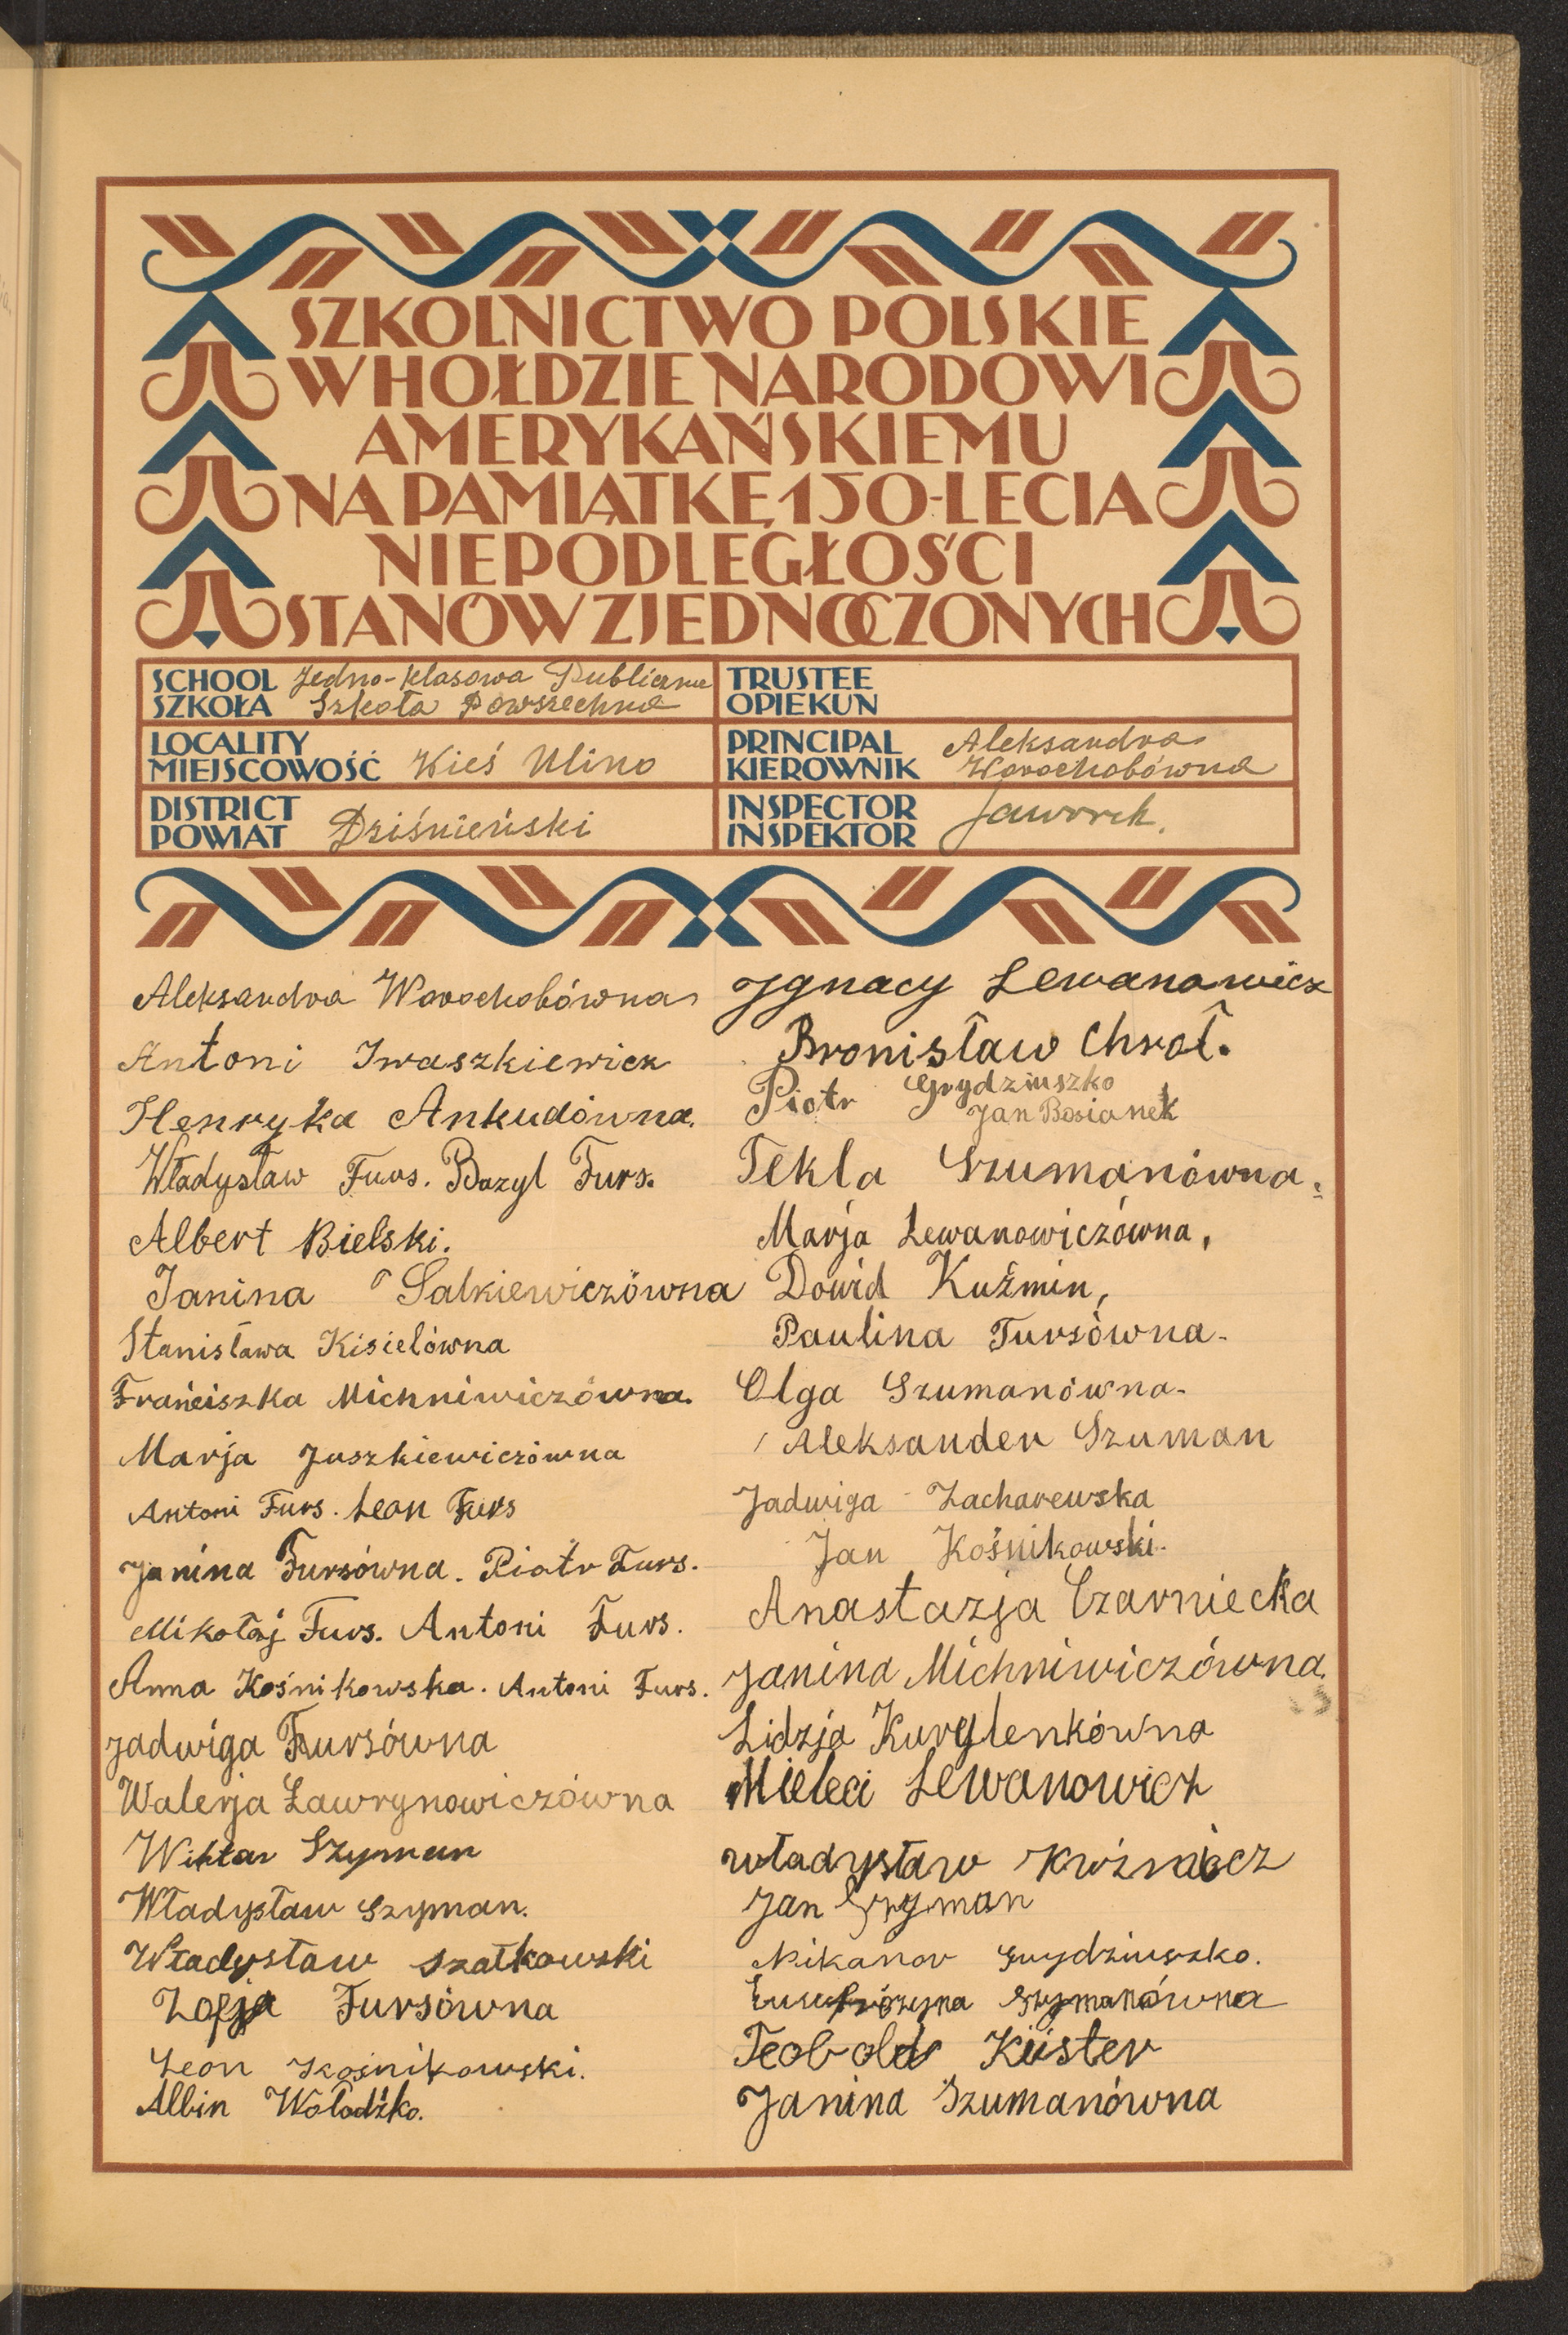 SZKOLNICTWO POLSKIE
W HOŁDZIE NARODOWI
AMERYKAŃSKIEMU
NA PAMIĄTKĘ 150-LECIA
NIEPODLEGŁOŚCI
STANÓW ZJEDNOCZONYCH
SCHOOL
SZKOŁA
Jedno-klasowa Publiczna
Szkoła Powszechna
TRUSTEE
OPIEKUN
LOCALITY
MIEJSCOWOŚĆ
Kieś Ulino
PRINCIPAL
KIEROWNIK
Aleksandra
Worochobówna
DISTRICT
POWIAT
Dziśnieński
INSPECTOR
INSPEKTOR
Jaworek.
Aleksandra Worochobówna
Antoni Iwaszkiewicz
Henryka Ankudówna.
Władysław Furs. Bazyl Furs.
Albert Bielski.
Janina Salkiewiczówna
Stanisława Kisielówna
Frańciszka Michniwiczówna.
Marja Juszkiewiczówna
Antoni Furs. Leon Furs
Janina Fursówna. Piotr Furs.
Mikołaj Furs. Antoni Furs.
Anna Kośnikowska. Antoni Furs.
Jadwiga Fursówna
Walerja Ławrynowiczówna
Wiktar Szyman
Władysław Szyman.
Władysław Szałkowski
Zofja Fursówna
Leon Kośnikowski.
Albin Wołodźko.
Jgnacy Lewanowicz
Bronisław Chroł.
Piotr Grydziuszko
Jan Bosianek
Tekla Szumanówna.
Marja Lewanowiczówna,
Dowid Kuźmin,
Paulina Fursówna.
Olga Szumanówna.
Aleksander Szuman
Jadwiga Zacharewska
Jan Kośnikowski.
Anastazja Czarniecka
Janina Michniwiczówna.
Lidzja Kurylenkówna
Lewanowicz
Władysław
Jan Szyman
Nikanor Grydziuszko.
Szymanówna
Teobold Küster
Janina Szumanówna